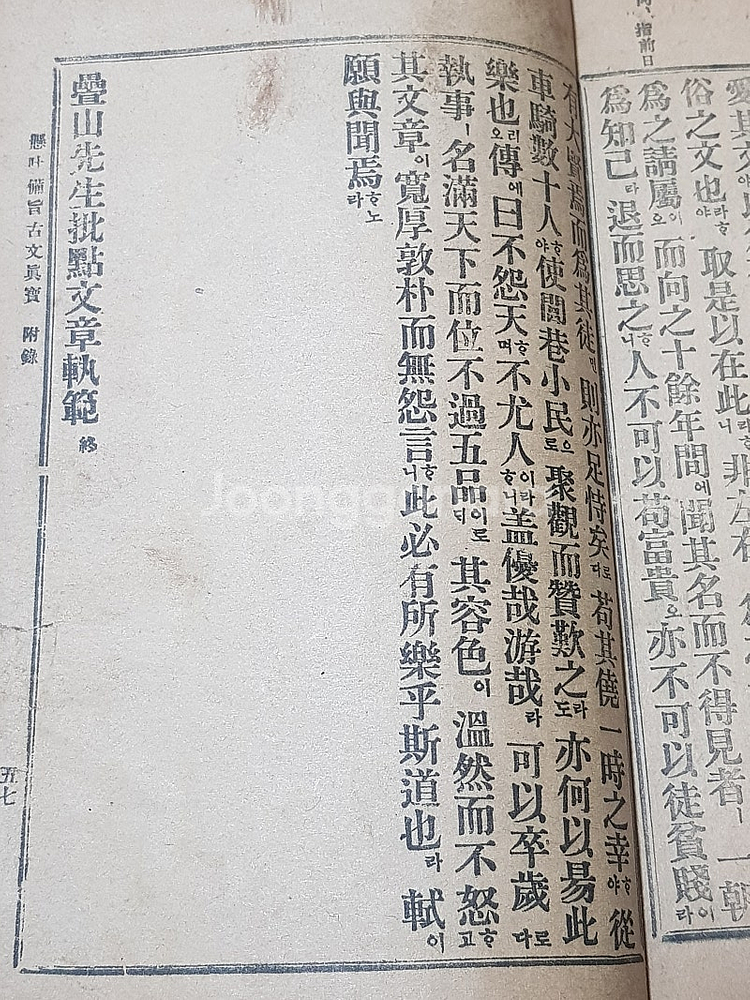 指前日
愛其文
俗之文也라ᄒᆞ야 取是以在此라ᄒᆞ니 非左右
爲之請屬이오 而向之十餘年間에 聞其名而不得見者ㅣ 一朝
爲知己라 退而思之ᄒᆞ니 人不可以苟富貴오 亦不可以徒貧賤이라
有大賢焉而爲其徒면 則亦足恃矣로다 苟其僥一時之幸ᄒᆞ야 從
車騎數十人ᄒᆞ야 使閭巷小民으로 聚觀而贊歎之라도 亦何以易此
樂也리오 傳에 曰不怨天ᄒᆞ며 不尤人이라ᄒᆞ니 盖優哉游哉라 可以卒歲로다
執事ㅣ 名滿天下而位不過五品이로ᄃᆡ 其容色이 溫然而不怒ᄒᆞ고
其文章이 寬厚敦朴而無怨言ᄒᆞ니 此必有所樂乎斯道也라 軾이
願與聞焉ᄒᆞ노라
疊山先生批點文章軌範 終
懸吐 備旨古文眞寶 附錄
五七